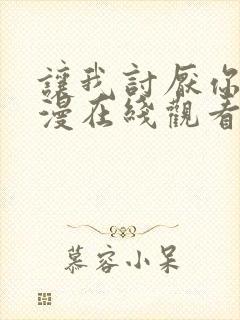 讓我討厭你
漫在綫觀看
慕容小呆